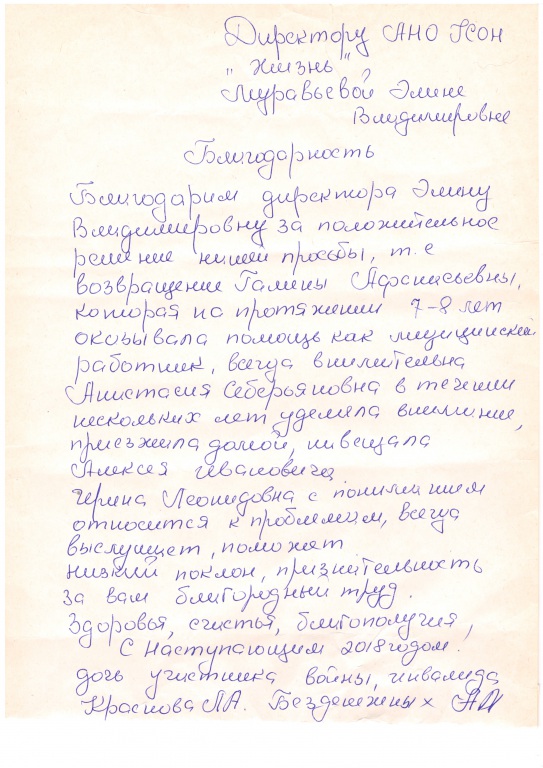 Директору АНО ГСОН
"Жизнь",
Муравьевой Элине
Владимировне
Благодарность
Благодарим директора Элину
Владимировну за положительное
решение нашей просьбы, т.е
возвращение Галины Афанасьевны,
которая на протяжении 7-8 лет
оказывала помощь как медицинский
работник, всегда внимательна
Анастасия Северьяновна в течении
нескольких лет уделяла внимание,
приезжала домой, навещала
Алексея Ивановича,
Ирина Леонидовна с пониманием
относится к проблемам, всегда
выслушает, поможет
низкий поклон, признательность
за вам благородный труд.
Здоровья, счастья, благополучия,
С наступающим 2018 годом.
дочь участника войны, инвалида
Краснова ЛА. Безденежных